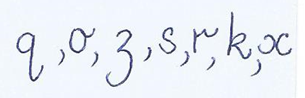 q, σ, z, s, r, k, x